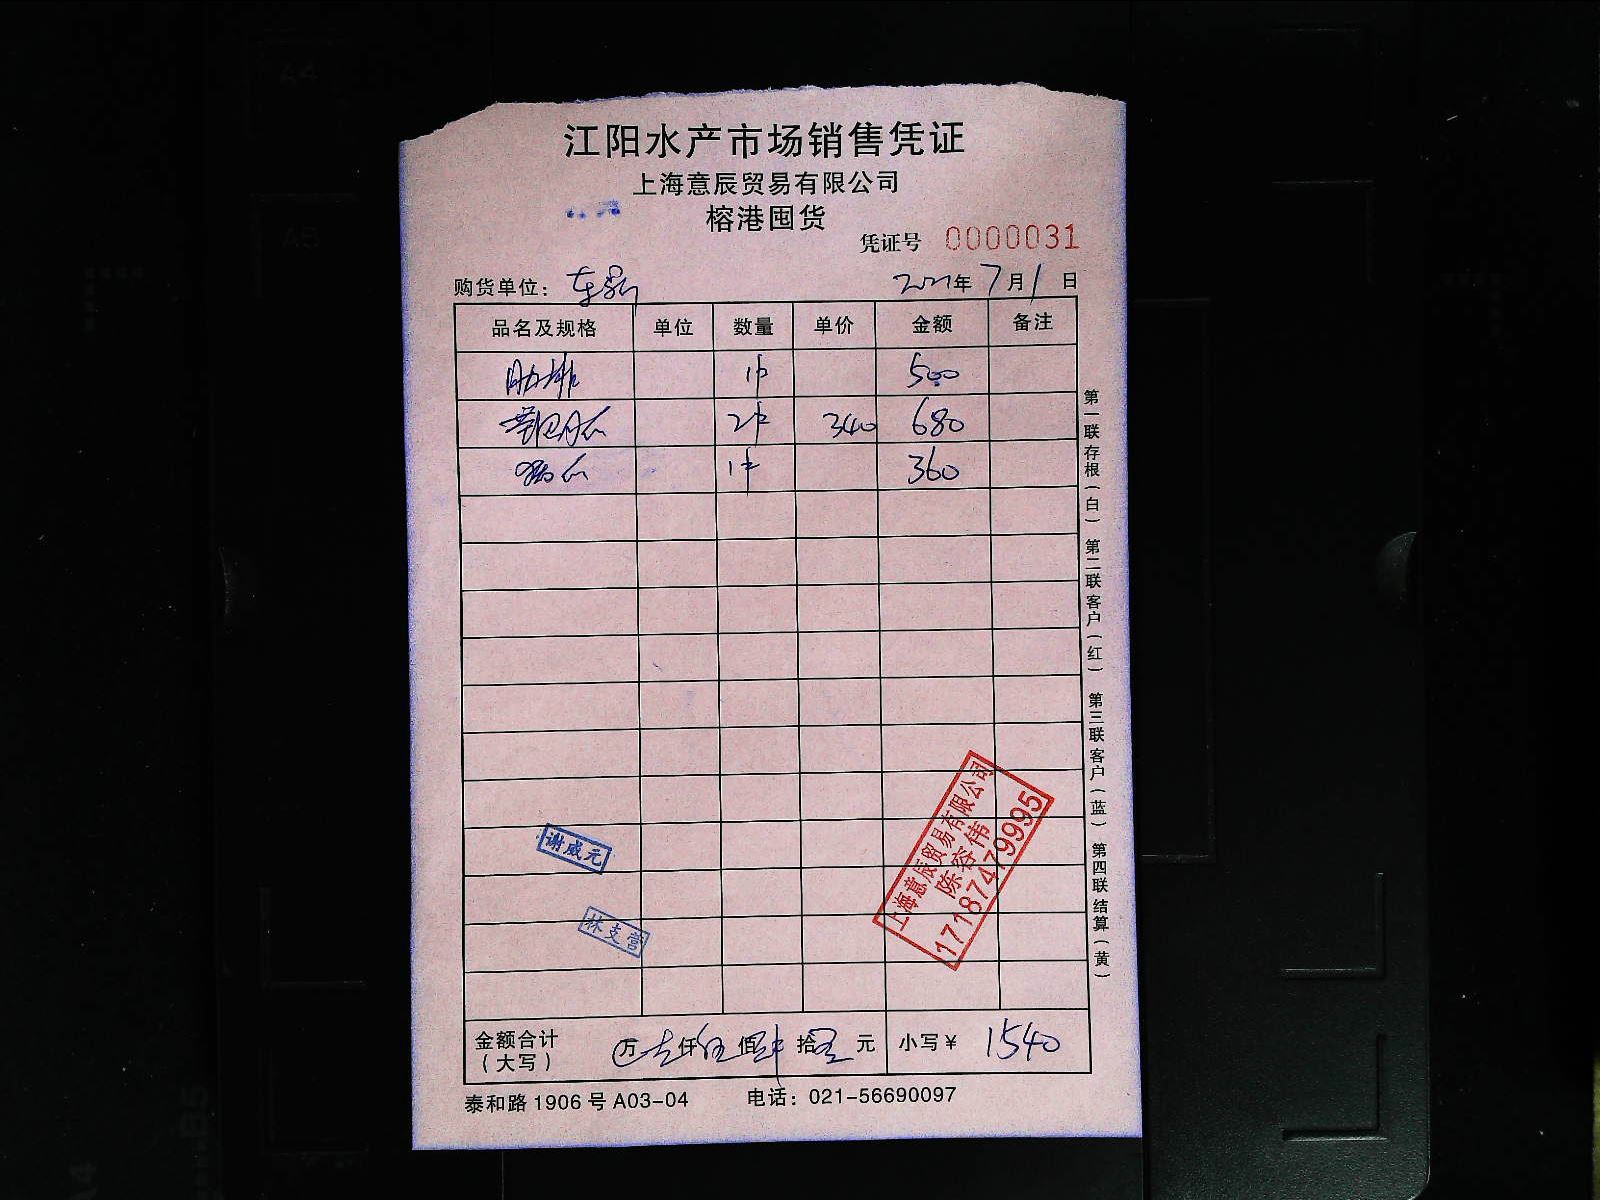 江阳水产市场销售凭证
上海意辰贸易有限公司
榕港囤货
凭证号 0000031
购货单位： 2021年7月1日
品名及规格 单位 数量 单价 金额 备注
肋排 1件 500
2件 340 680
1件 360
第一联存根(白) 第二联客户(红) 第三联客户(蓝) 第四联结算(黄)
上海意辰贸易有限公司
陈容伟
17187479995
谢威元
林支营
金额合计 万壹仟伍佰肆拾零元 小写¥ 1540
(大写)
泰和路1906号A03-04 电话：021-56690097